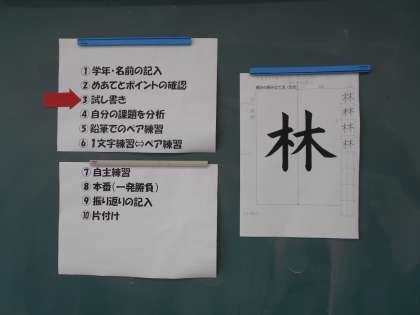 ① 学年・名前の記入
② めあてとポイントの確認
③ 試し書き
④ 自分の課題を分析
⑤ 鉛筆でのペア練習
⑥ 1文字練習⇔ペア練習
⑦ 自主練習
⑧ 本番(一発勝負)
⑨ 振り返りの記入
⑩ 片付け
林
林
林
林
林